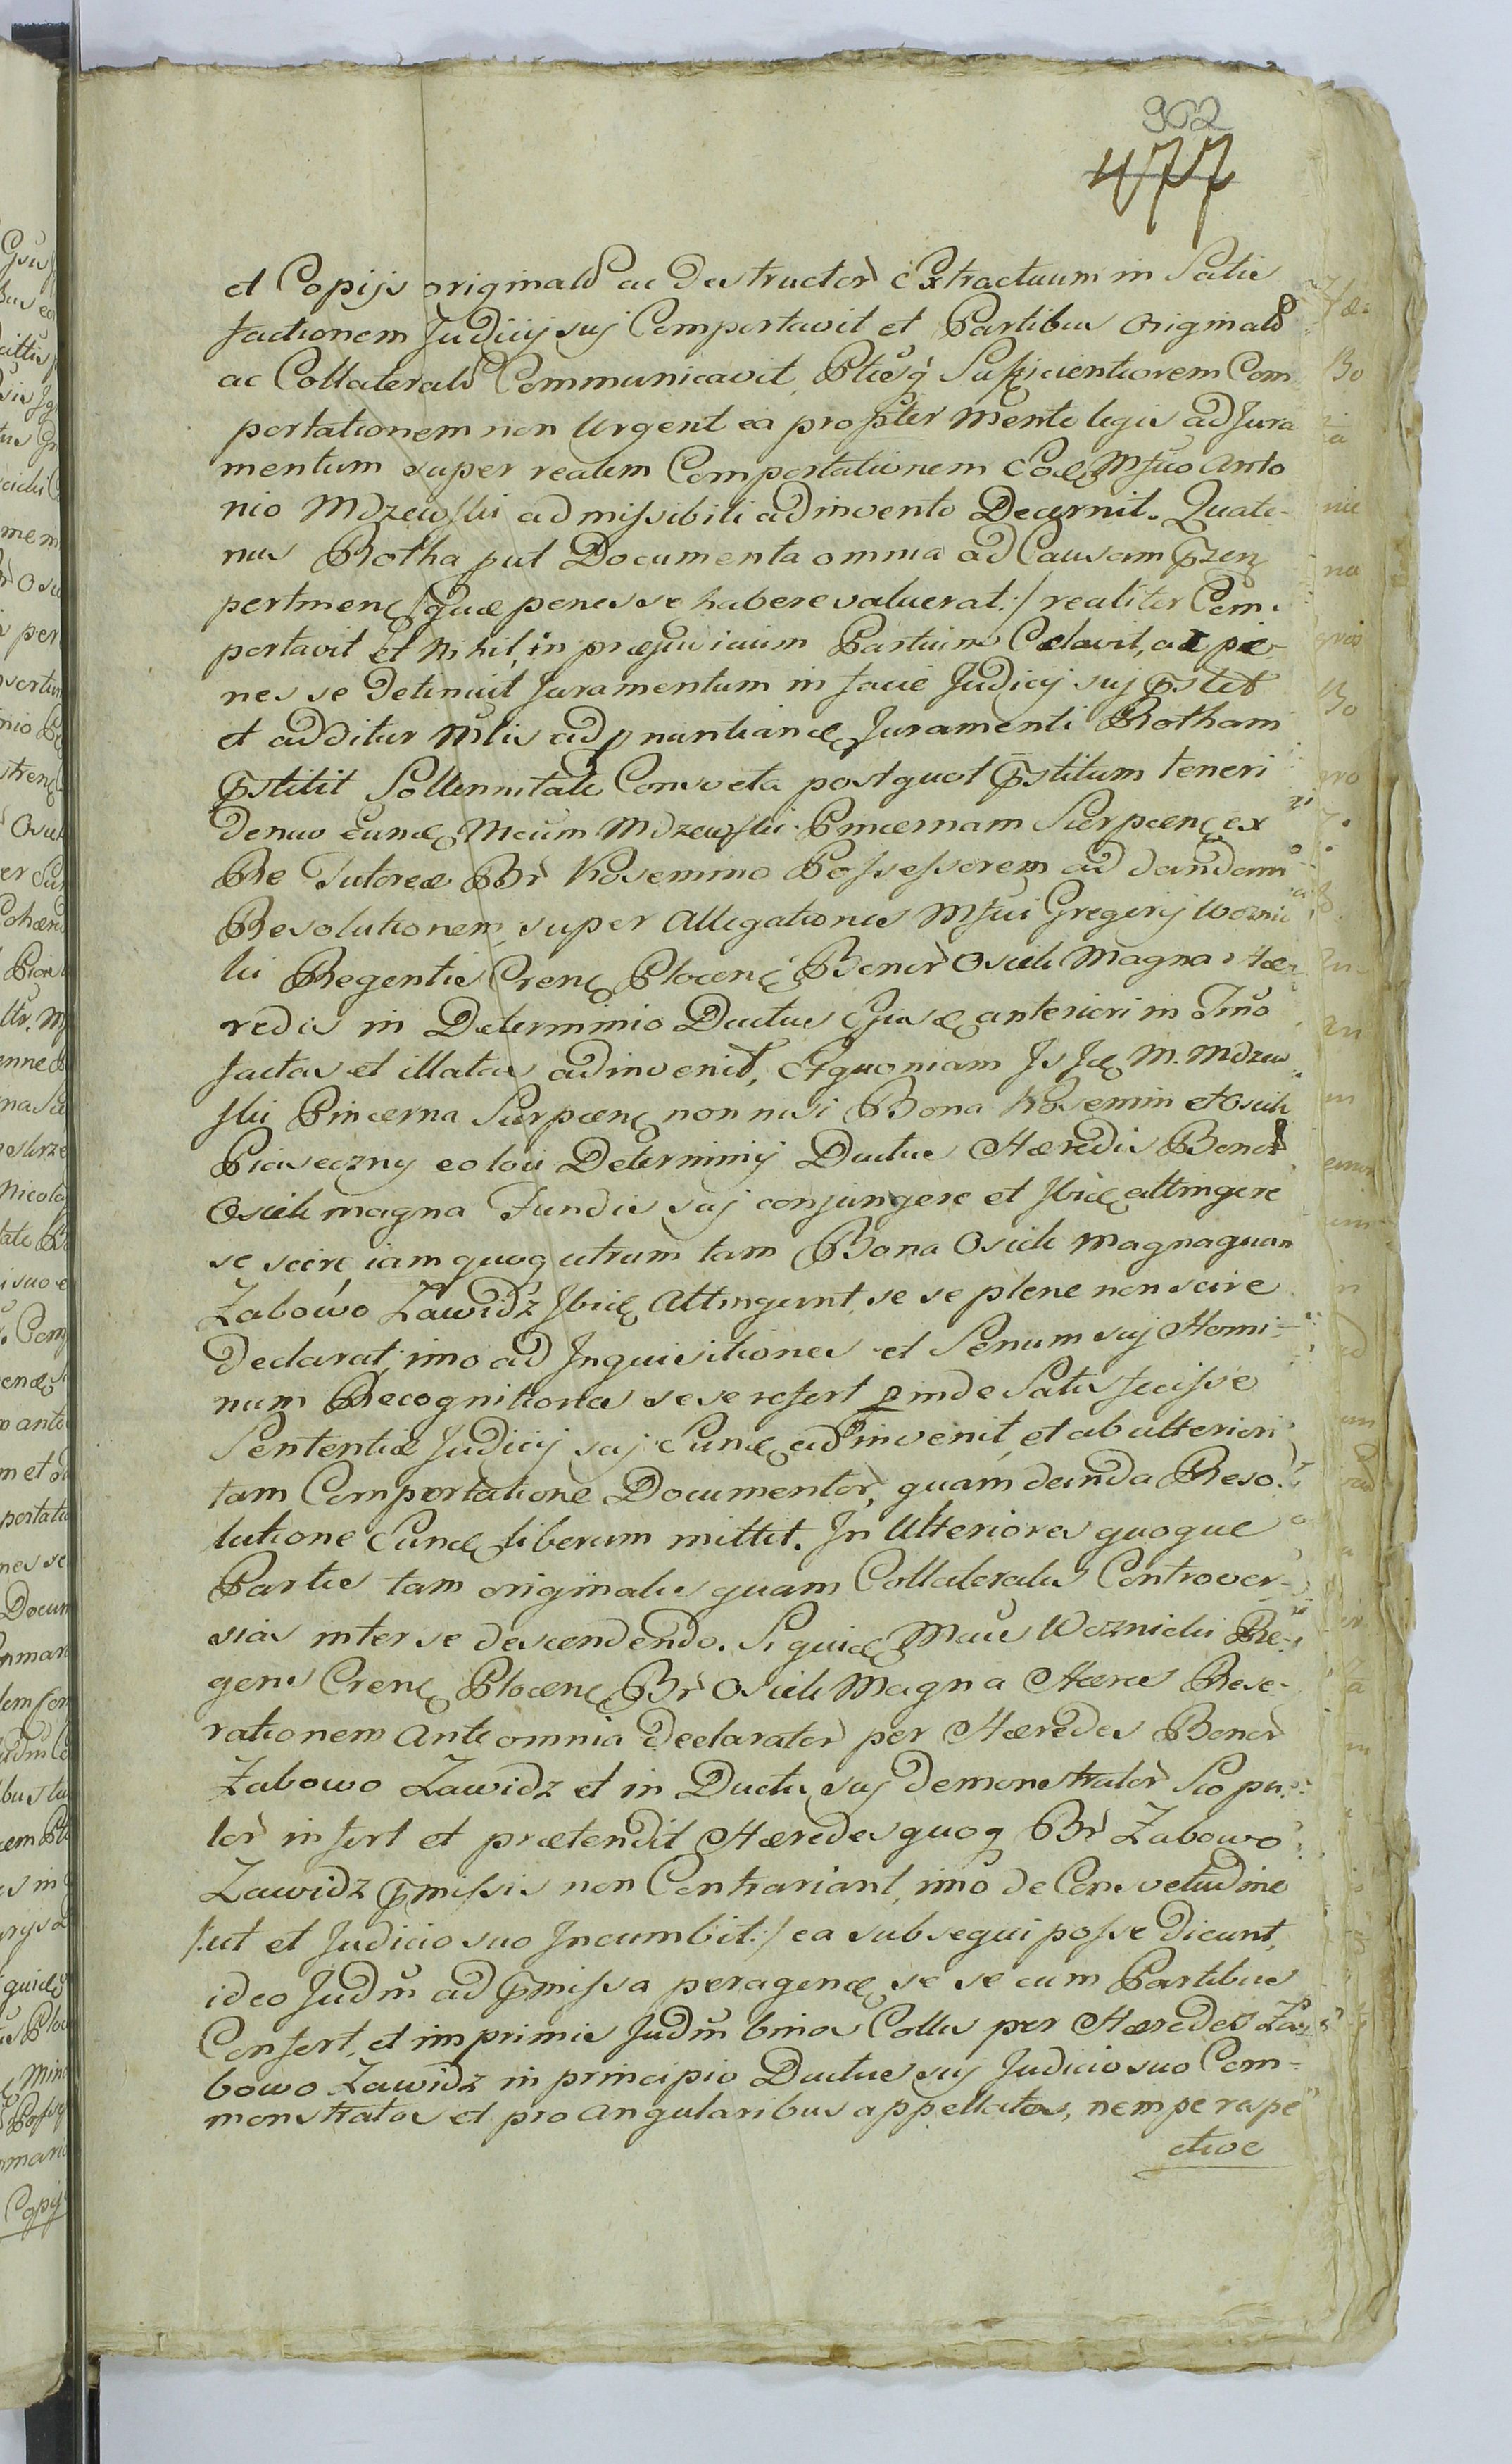 902
477
et Copijs originald ac destructor Extractuum in Satis
factionem Judicij suj Comportavit et Partibus originald
ac Collaterald Communicavit, Ptesq Sufficientiorem Com
portationem non Urgent ea propter mente legis ad Jura
mentum super realem Comportationem Eoq Mfco Anto
nio Mdzewski admissibili adinvento Decernit. Quate-
nus Rotha put Documenta omnia ad Causam pzen
pertinen /quæ penes se habere valuerat:/ realiter Com-
portavit et nihil in præjudicium Partium Celavit, ac pe-
nes se detinuit Juramentum in facie Judicij suj pstet
et additur Mtis ad pnuntiand Juramenti Rotham
pstitit Sollennitate Consveta postquot pstitum teneri
denuo eund Mcum Mdzewski Pincernam Sierpcen ex
Re Tutorea Br Kosemino Possessorem ad dandam
Resolutionem super Allegationes Mfci Gregorij Woznic
ki Regentis Cren Plocen Bonor Osiek Magna Hæ-
redis in Determinio Ductus Ejusd anteriori in Tmo
factas et illatas adinvenit, Et quoniam Js Jd M. Mdzew
ski Pincerna Sierpcen non nisi Bona Kosemin et Osiek
Piaseczny eo loci Determinij Ductus Hæredis Bonor
Osiek magna Fundis suj conjungere et Jbid attingere
se scire iam quoq utrum tam Bona Osiek Magna quam
Zabowo Zawidz Jbid Attingunt, se se plene non scire
declarat, imo ad Jnquisitiones et Senum suj Homi-
num Recognitiones se se refert pinde Satis fecisse
Sententiæ Judicij suj Eund adinvenit, et ab ulteriori
tam Comportatione Documentor, quam danda Reso-
lutione Eund liberum mittit. In Ulteriores quoque
Partes tam originales quam Collaterales Controver-
sias inter se descendendo. Siquid Mcus Woznicki Re-
gens Cren Plocen Br Osiek Magna Hæres Rese-
rationem Ante omnia declarator per Hæredes Bonor
Zabowo Zawidz et in Ductu suj demonstrator Scopu-
lor infert et prætendit Hæredes quoq Br Zabowo
Zawidz pmissis non Contrariant, imo de Consvetudine
/:ut et Judicio suo Jncumbit:/ ea subsequi posse dicunt,
ideo Judm ad pmissa peragend se se cum Partibus
Confert, et imprimis Judm binos Colles per Hæredes Za-
bowo Zawidz in principio Ductus suj Judicio suo Com-
monstratos et pro Angularibus appellatos, nempe respe
ctive